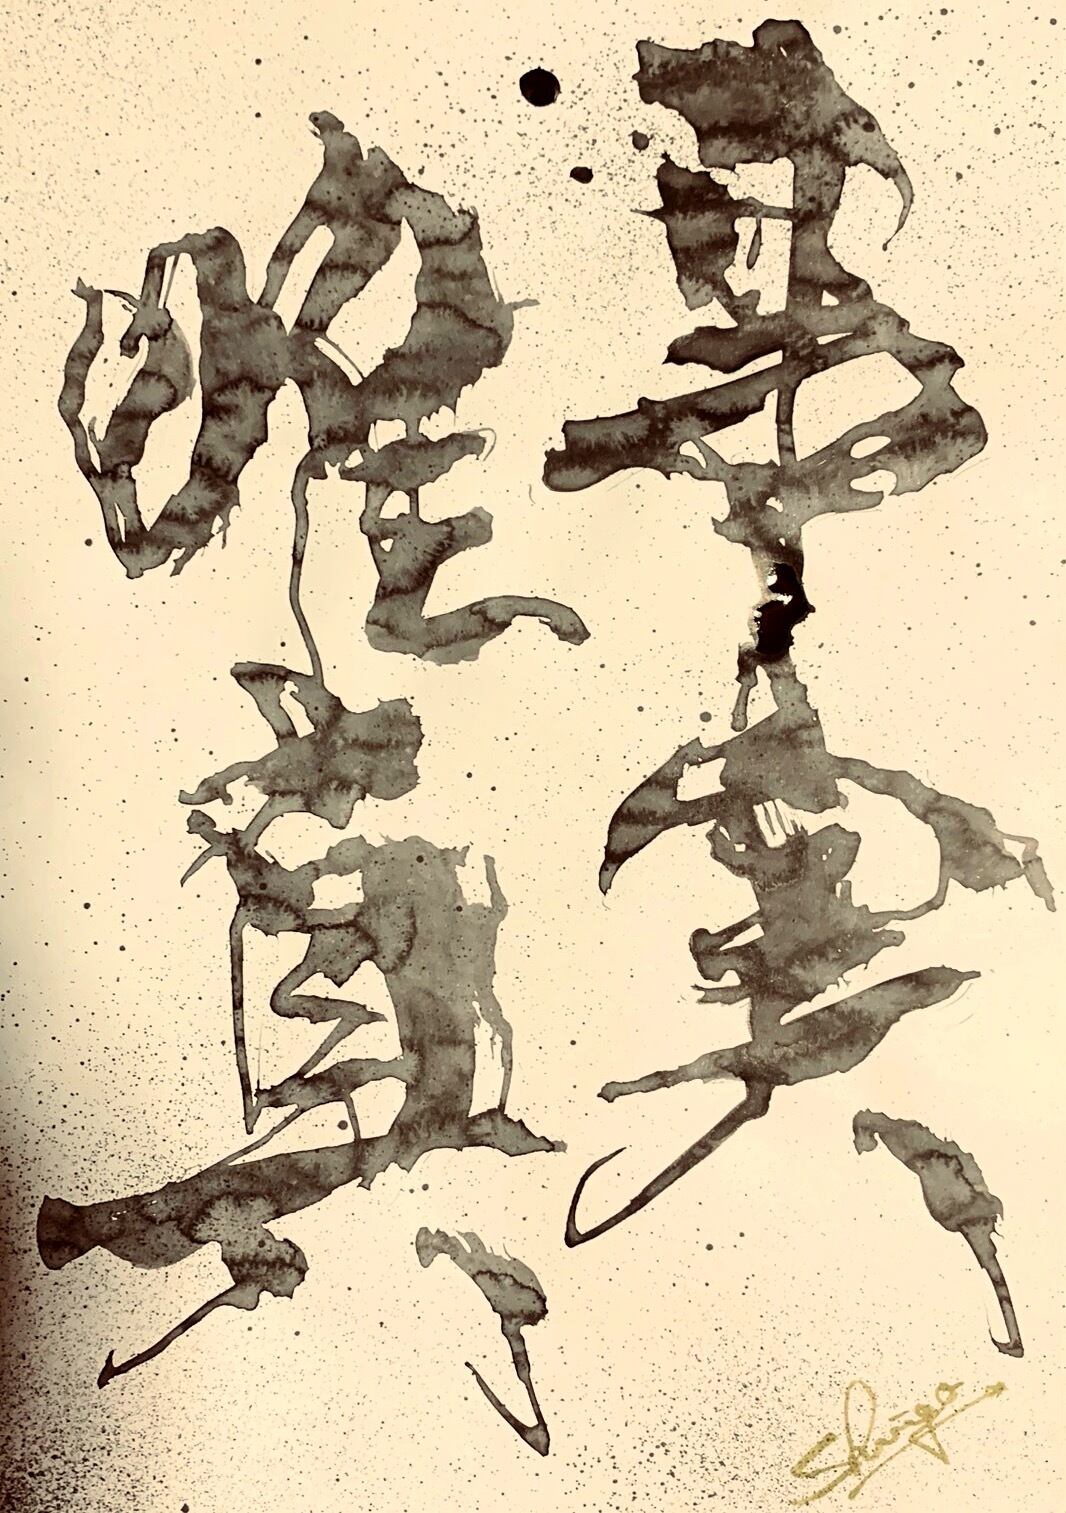 事実
唯真
Shingo